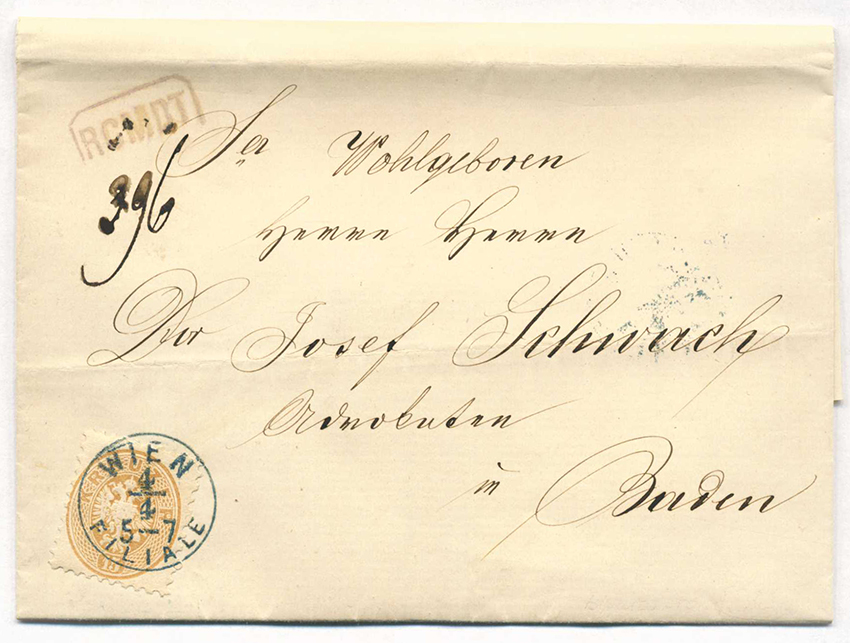 RCMDT
396
Ser Wohlgeboren
Herrn Herrn
Dor Josef Schwach
Advokaten
in Baden
WIEN
4
4
5-7
FILIALE